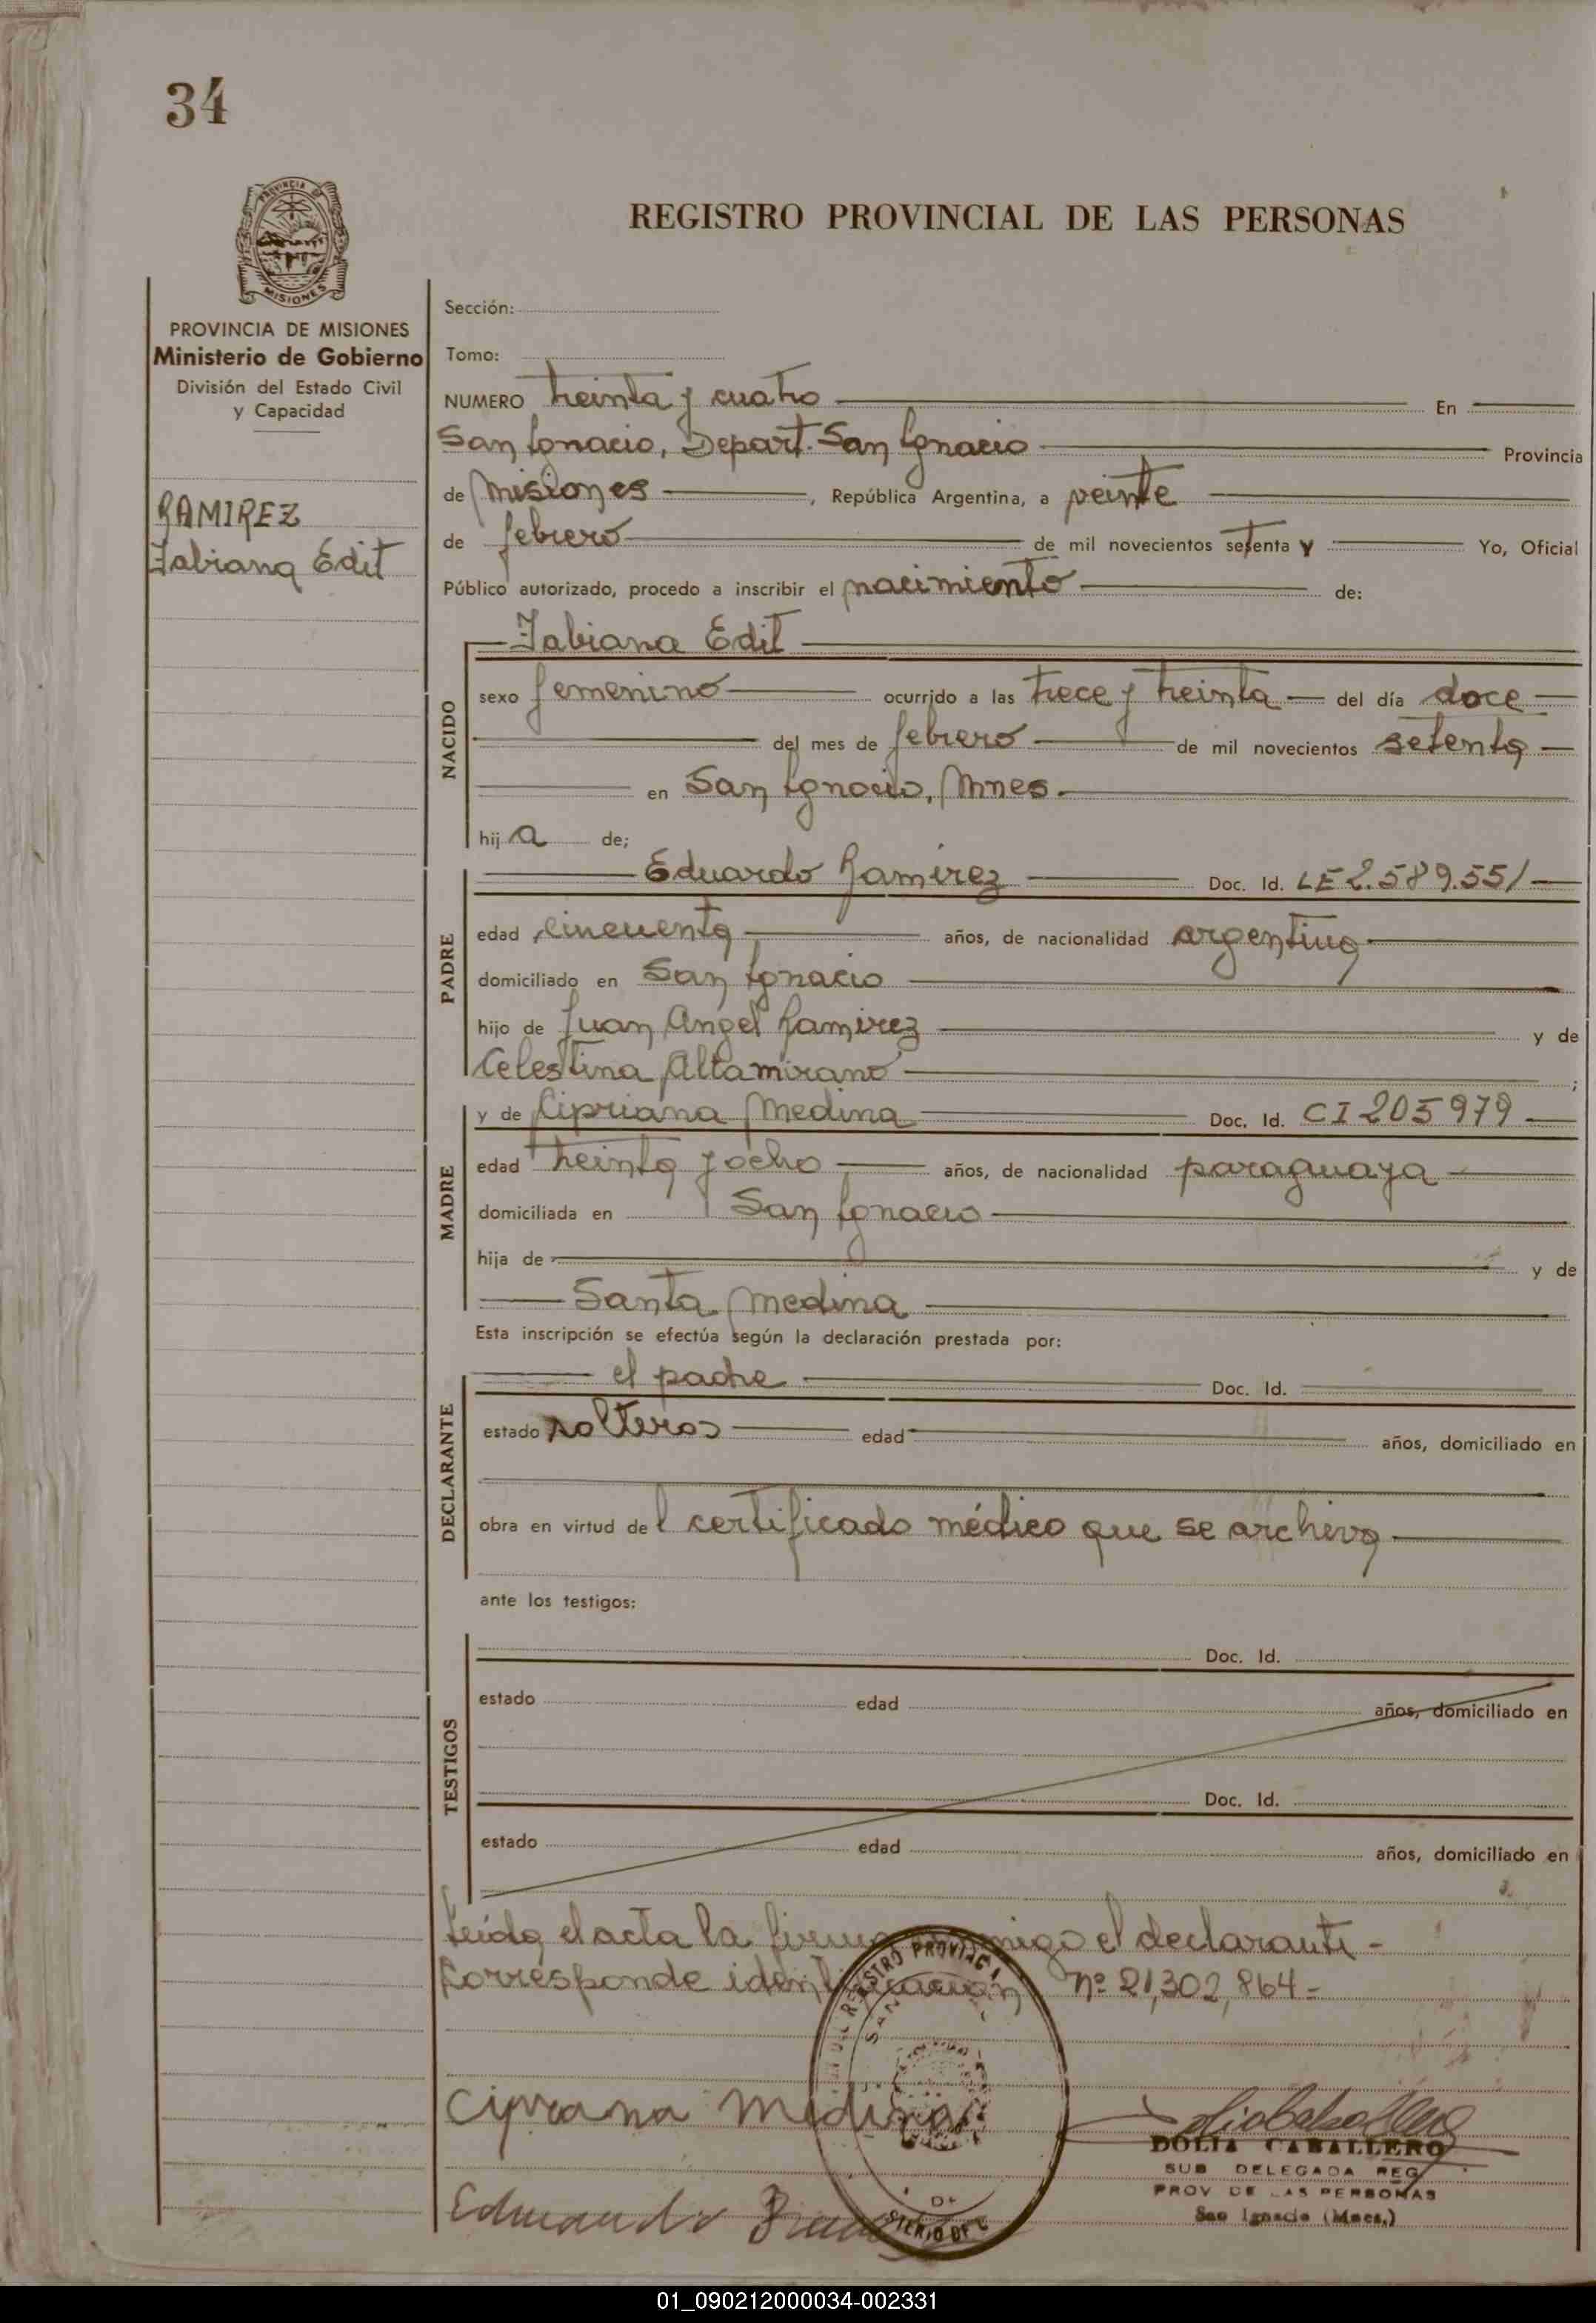 34
PROVINCIA DE
MISIONES
REGISTRO PROVINCIAL DE LAS PERSONAS
PROVINCIA DE MISIONES
Ministerio de Gobierno
División del Estado Civil
y Capacidad
RAMIREZ
Fabiana Edit
Sección:
Tomo:
NUMERO treinta y cuatro En
San Ignacio, Depart. San Ignacio Provincia
de Misiones, República Argentina, a veinte
de febrero de mil novecientos setenta y Yo, Oficial
Público autorizado, procedo a inscribir el nacimiento de:
NACIDO
Fabiana Edit
sexo femenino ocurrido a las trece y treinta del día doce
del mes de febrero de mil novecientos setenta
en San Ignacio, Mnes.
hija de;
PADRE
Eduardo Ramirez Doc. Id. LE 2.589.551
edad cincuenta años, de nacionalidad argentina
domiciliado en San Ignacio
hijo de Juan Angel Ramirez y de
Celestina Altamirano ;
MADRE
y de Cipriana Medina Doc. Id. CI 205979
edad treinta y ocho años, de nacionalidad paraguaya
domiciliada en San Ignacio
hija de y de
Santa Medina
Esta inscripción se efectúa según la declaración prestada por:
DECLARANTE
el padre Doc. Id.
estado solteros edad años, domiciliado en
obra en virtud del certificado médico que se archiva
ante los testigos:
TESTIGOS
Doc. Id.
estado edad años, domiciliado en
Doc. Id.
estado edad años, domiciliado en
Leida el acta la firma conmigo el declarante -
Corresponde identificación Nº 21,302,864 -
Ciprana Medina
DOLIA CABALLERO
SUB DELEGADA REG
PROV DE LAS PERSONAS
San Ignacio (Mnes.)
01_090212000034-002331